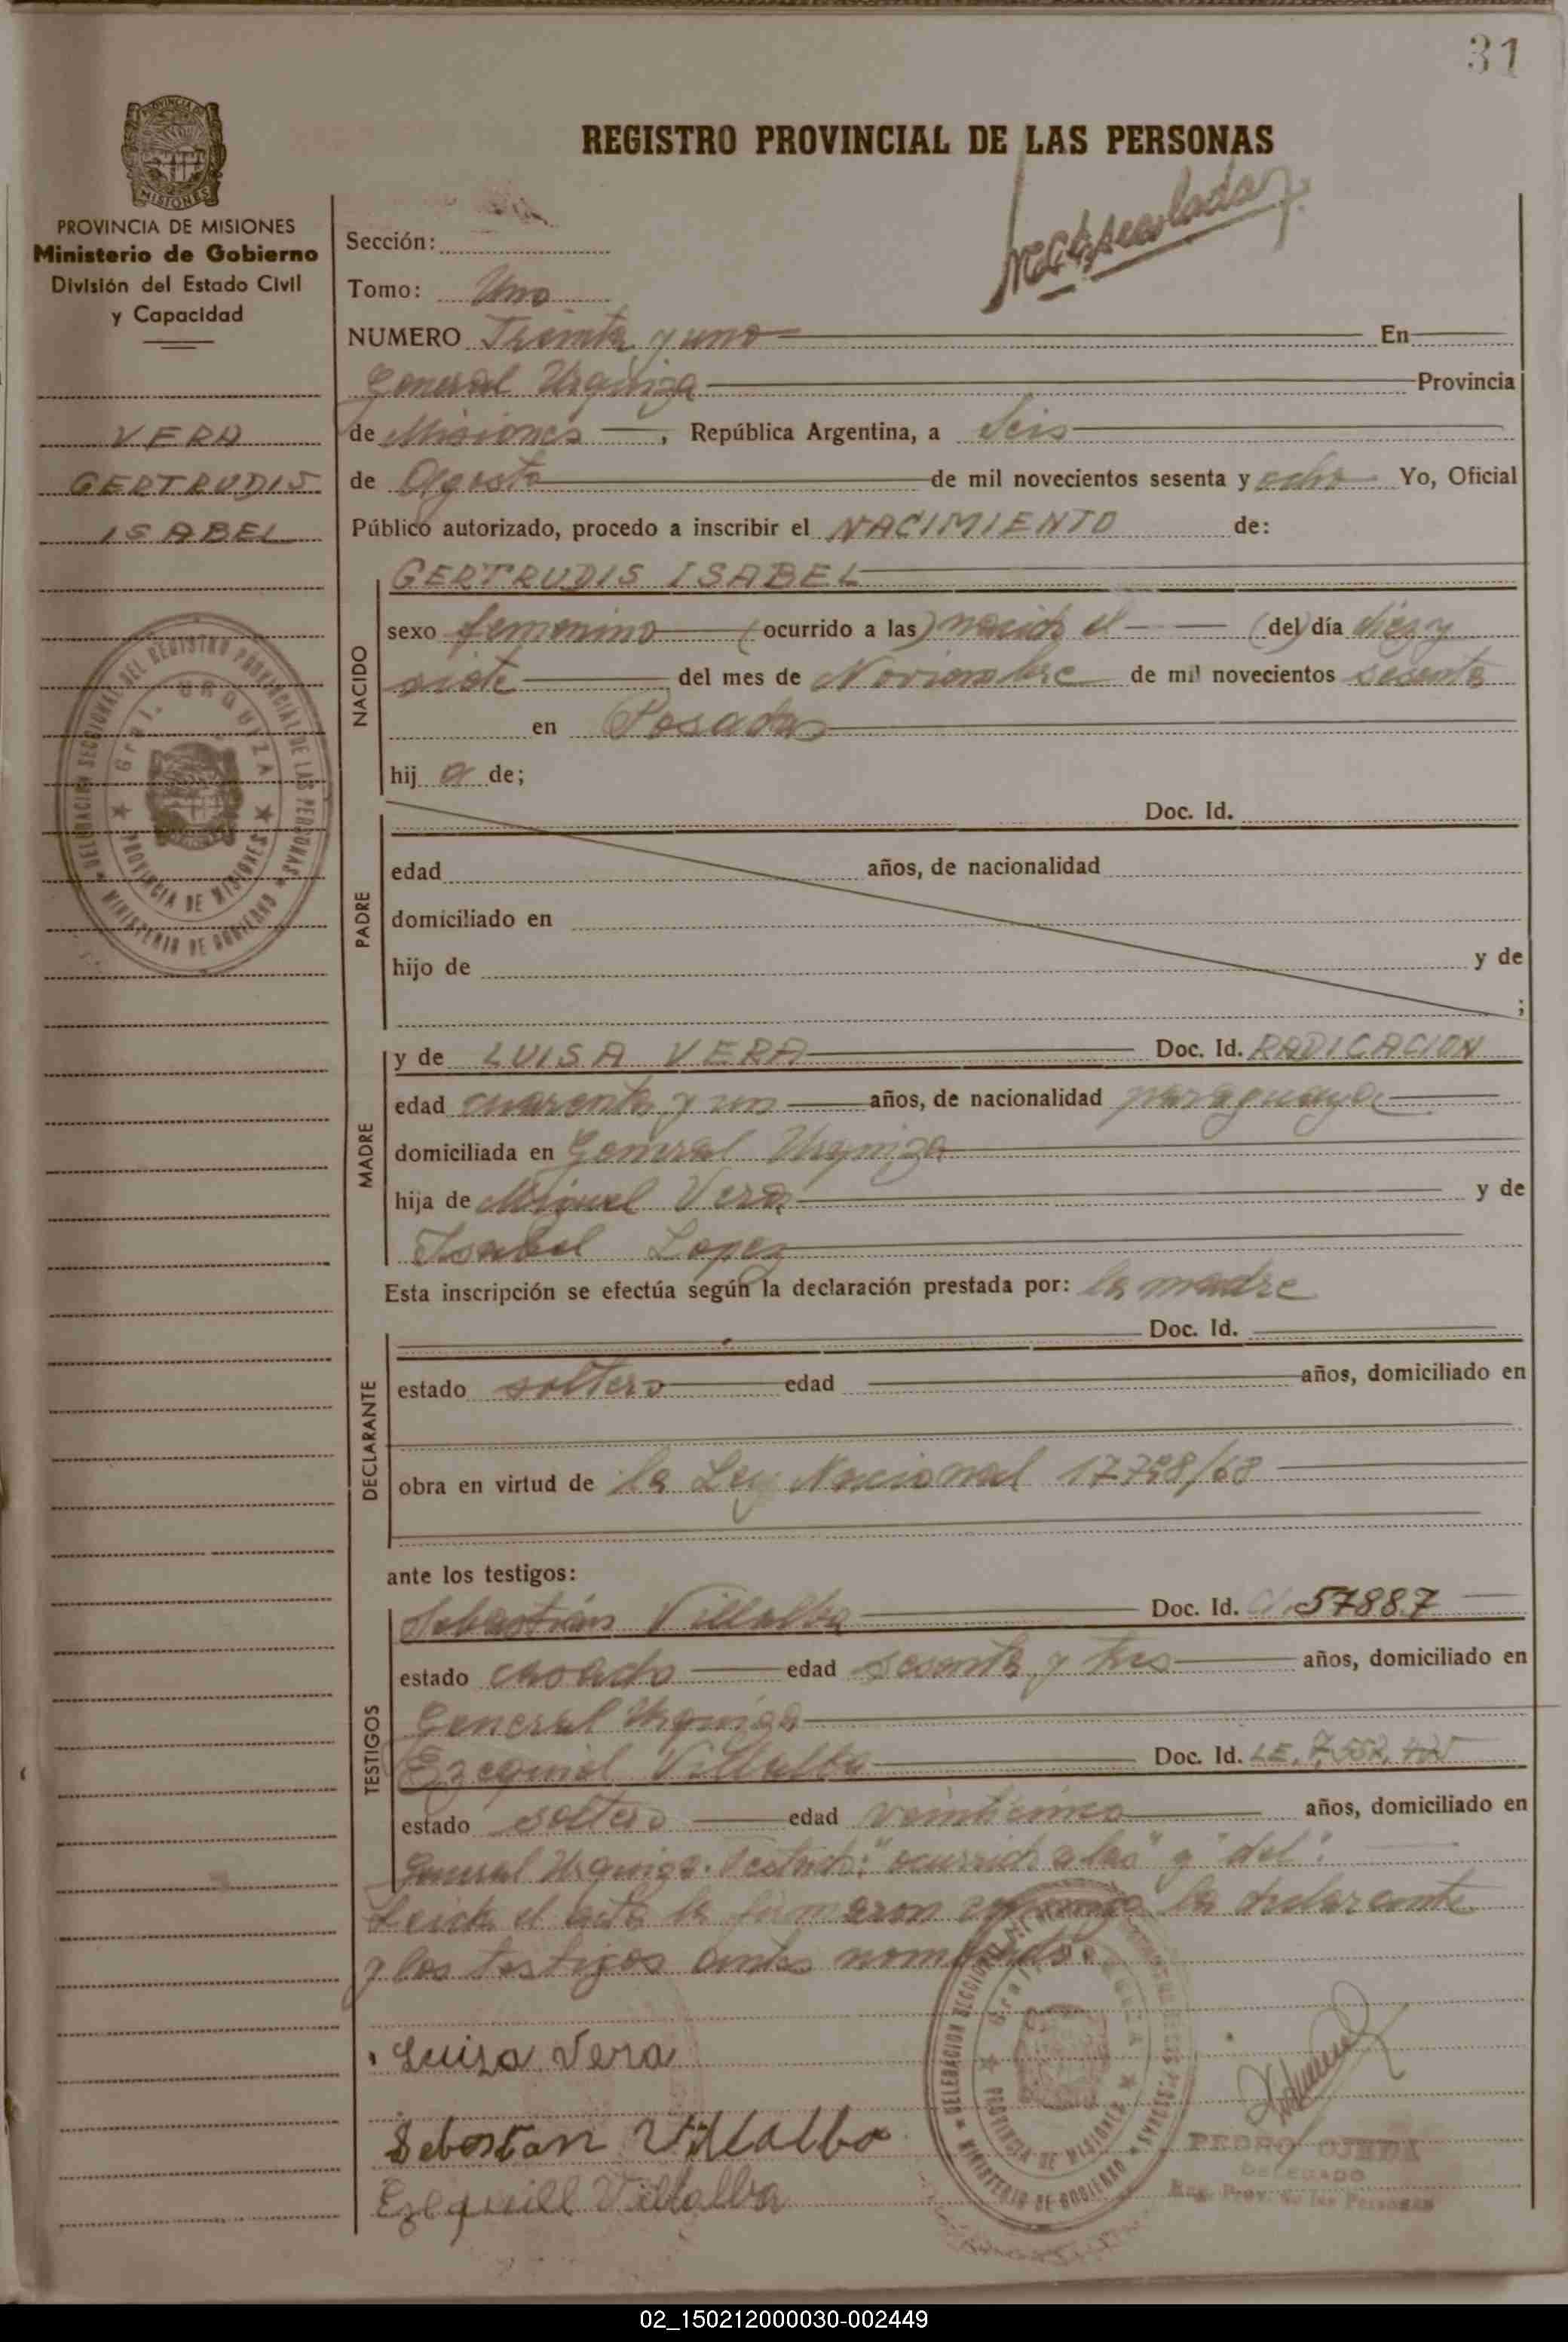 31
REGISTRO PROVINCIAL DE LAS PERSONAS
MISIONES
PROVINCIA DE MISIONES
Ministerio de Gobierno
División del Estado Civil
y Capacidad
VERA
GERTRUDIS
ISABEL
Sección:
Tomo: Uno
NUMERO Treinta y uno En
General Urquiza Provincia
de Misiones, República Argentina, a Seis
de Agosto de mil novecientos sesenta y ocho Yo, Oficial
Público autorizado, procedo a inscribir el NACIMIENTO de:
NACIDO
GERTRUDIS ISABEL
sexo femenino (ocurrido a las) nacida el (del) día diez y
siete del mes de Noviembre de mil novecientos sesenta
en Posadas
hij a de;
PADRE
Doc. Id.
edad años, de nacionalidad
domiciliado en
hijo de y de
;
MADRE
y de LUISA VERA Doc. Id. RADICACION
edad cuarenta y un años, de nacionalidad paraguaya
domiciliada en General Urquiza
hija de Miguel Vera y de
Isabel Lopez
Esta inscripción se efectúa según la declaración prestada por: la madre
DECLARANTE
Doc. Id.
estado soltero edad años, domiciliado en
obra en virtud de la Ley Nacional
ante los testigos:
TESTIGOS
Sebastián Villalba Doc. Id. 57887
estado casado edad sesenta y tres años, domiciliado en
General Urquiza
Ezequiel Villalba Doc. Id. LE.
estado soltero edad veinticinco años, domiciliado en
General Urquiza. Testado: "ocurrido a las" y "del".
Leida el acta la firmaron conmigo la declarante
y los testigos antes nombrados.
Luisa Vera
Sebostan Villalba
Ezequiell Villalba
DELEGACION SECCIONAL DEL REGISTRO PROVINCIAL DE LAS PERSONAS
MINISTERIO DE GOBIERNO
Gral. URQUIZA
PROVINCIA DE MISIONES
PEDRO OJEDA
DELEGADO
Reg. Prov. de las Personas
02_150212000030-002449